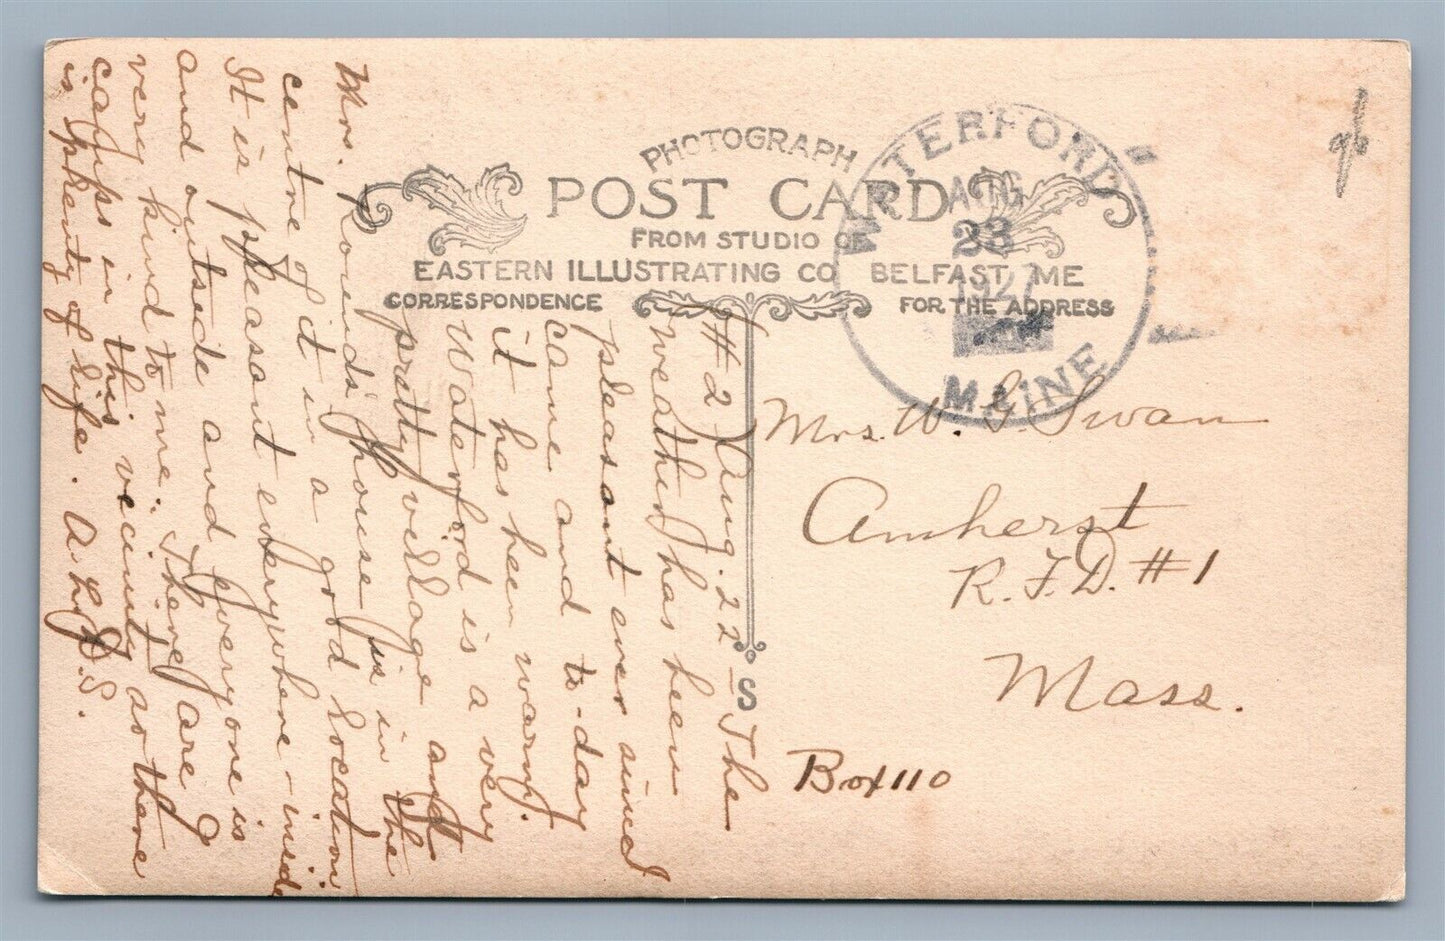 PHOTOGRAPH
POST CARD
FROM STUDIO OF
EASTERN ILLUSTRATING CO BELFAST, ME
CORRESPONDENCE
FOR THE ADDRESS
WATERFORD
AUG
23
1927
MAINE
#2 Aug. 22 - The
weather has been
pleasant ever since I
came and to-day
it has been warm.
Waterford is a very
pretty village and
Mrs. Pounds' house is in the
centre of it in a good location
It is pleasant everywhere - inside
and outside and everyone is
very kind to me. There are 7
camps in this vicinity so there
is plenty of life. A.
S
Mrs. W. G. Swan
Amherst
R.F.D. #1
Mass.
Box 110